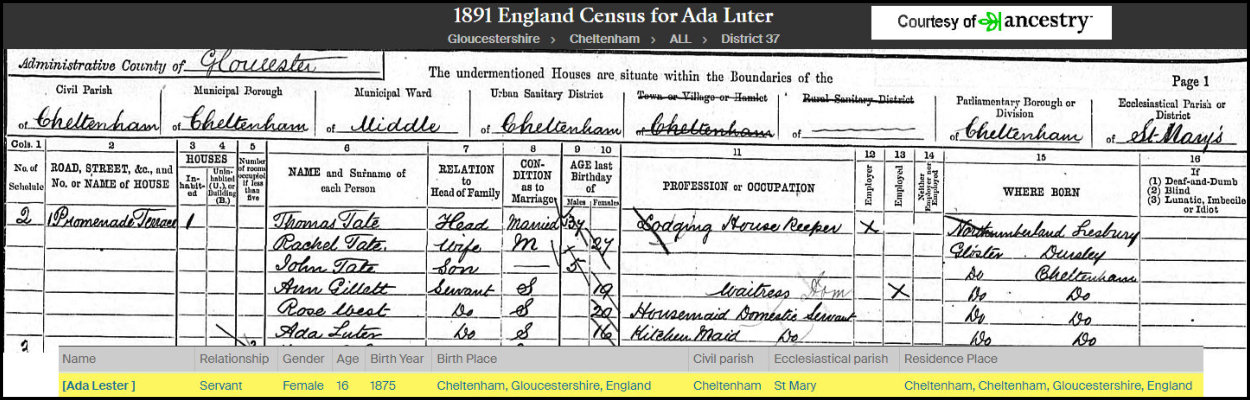 1891 England Census for Ada Luter
Courtesy of ancestry
Gloucestershire > Cheltenham > ALL > District 37
Administrative County of Gloucester
The undermentioned Houses are situate within the Boundaries of the
Page 1
Civil Parish Municipal Borough Municipal Ward Urban Sanitary District Town or Village or Hamlet Rural Sanitary District Parliamentary Borough or Division Ecclesiastical Parish or District
of Cheltenham of Cheltenham of Middle of Cheltenham of Cheltenham of of Cheltenham of St Mary's
Cols. 1 2 3 4 5 6 7 8 9 10 11 12 13 14 15 16
No. of Schedule ROAD, STREET, &c., and No. or NAME of HOUSE HOUSES In-habit-ed Unin-habited (U.), or Building (B.) Number of rooms occupied if less than five NAME and Surname of each Person RELATION to Head of Family CON-DITION as to Marriage AGE last Birthday of Males Females PROFESSION or OCCUPATION Employer Employed Neither Employer nor Employed WHERE BORN If (1) Deaf-and-Dumb (2) Blind (3) Lunatic, Imbecile or Idiot
2 1 Promenade Terrace 1 Thomas Tate Head Married 37 Lodging House Keeper X Northumberland Lesbury
Rachel Tate Wife M 27 Gloster Dursley
John Tate Son — 5 Do Cheltenham
Ann Gillett Servant S 19 Waitress Dom X Do Do
Rose West Do S 20 Housemaid Domestic Servant Do Do
Ada Luter Do S 16 Kitchen Maid Do Do Do
2
Name Relationship Gender Age Birth Year Birth Place Civil parish Ecclesiastical parish Residence Place
[Ada Lester ] Servant Female 16 1875 Cheltenham, Gloucestershire, England Cheltenham St Mary Cheltenham, Cheltenham, Gloucestershire, England